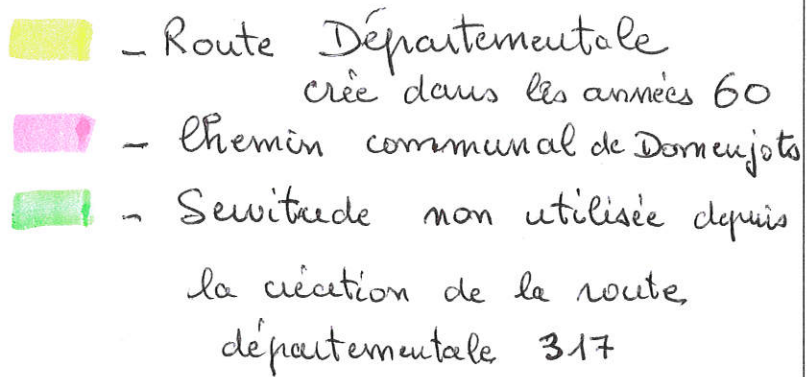 - Route Départementale
crée dans les années 60
- Chemin communal de Domeujots
- Servitude non utilisée depuis
la création de la route
départementale 317